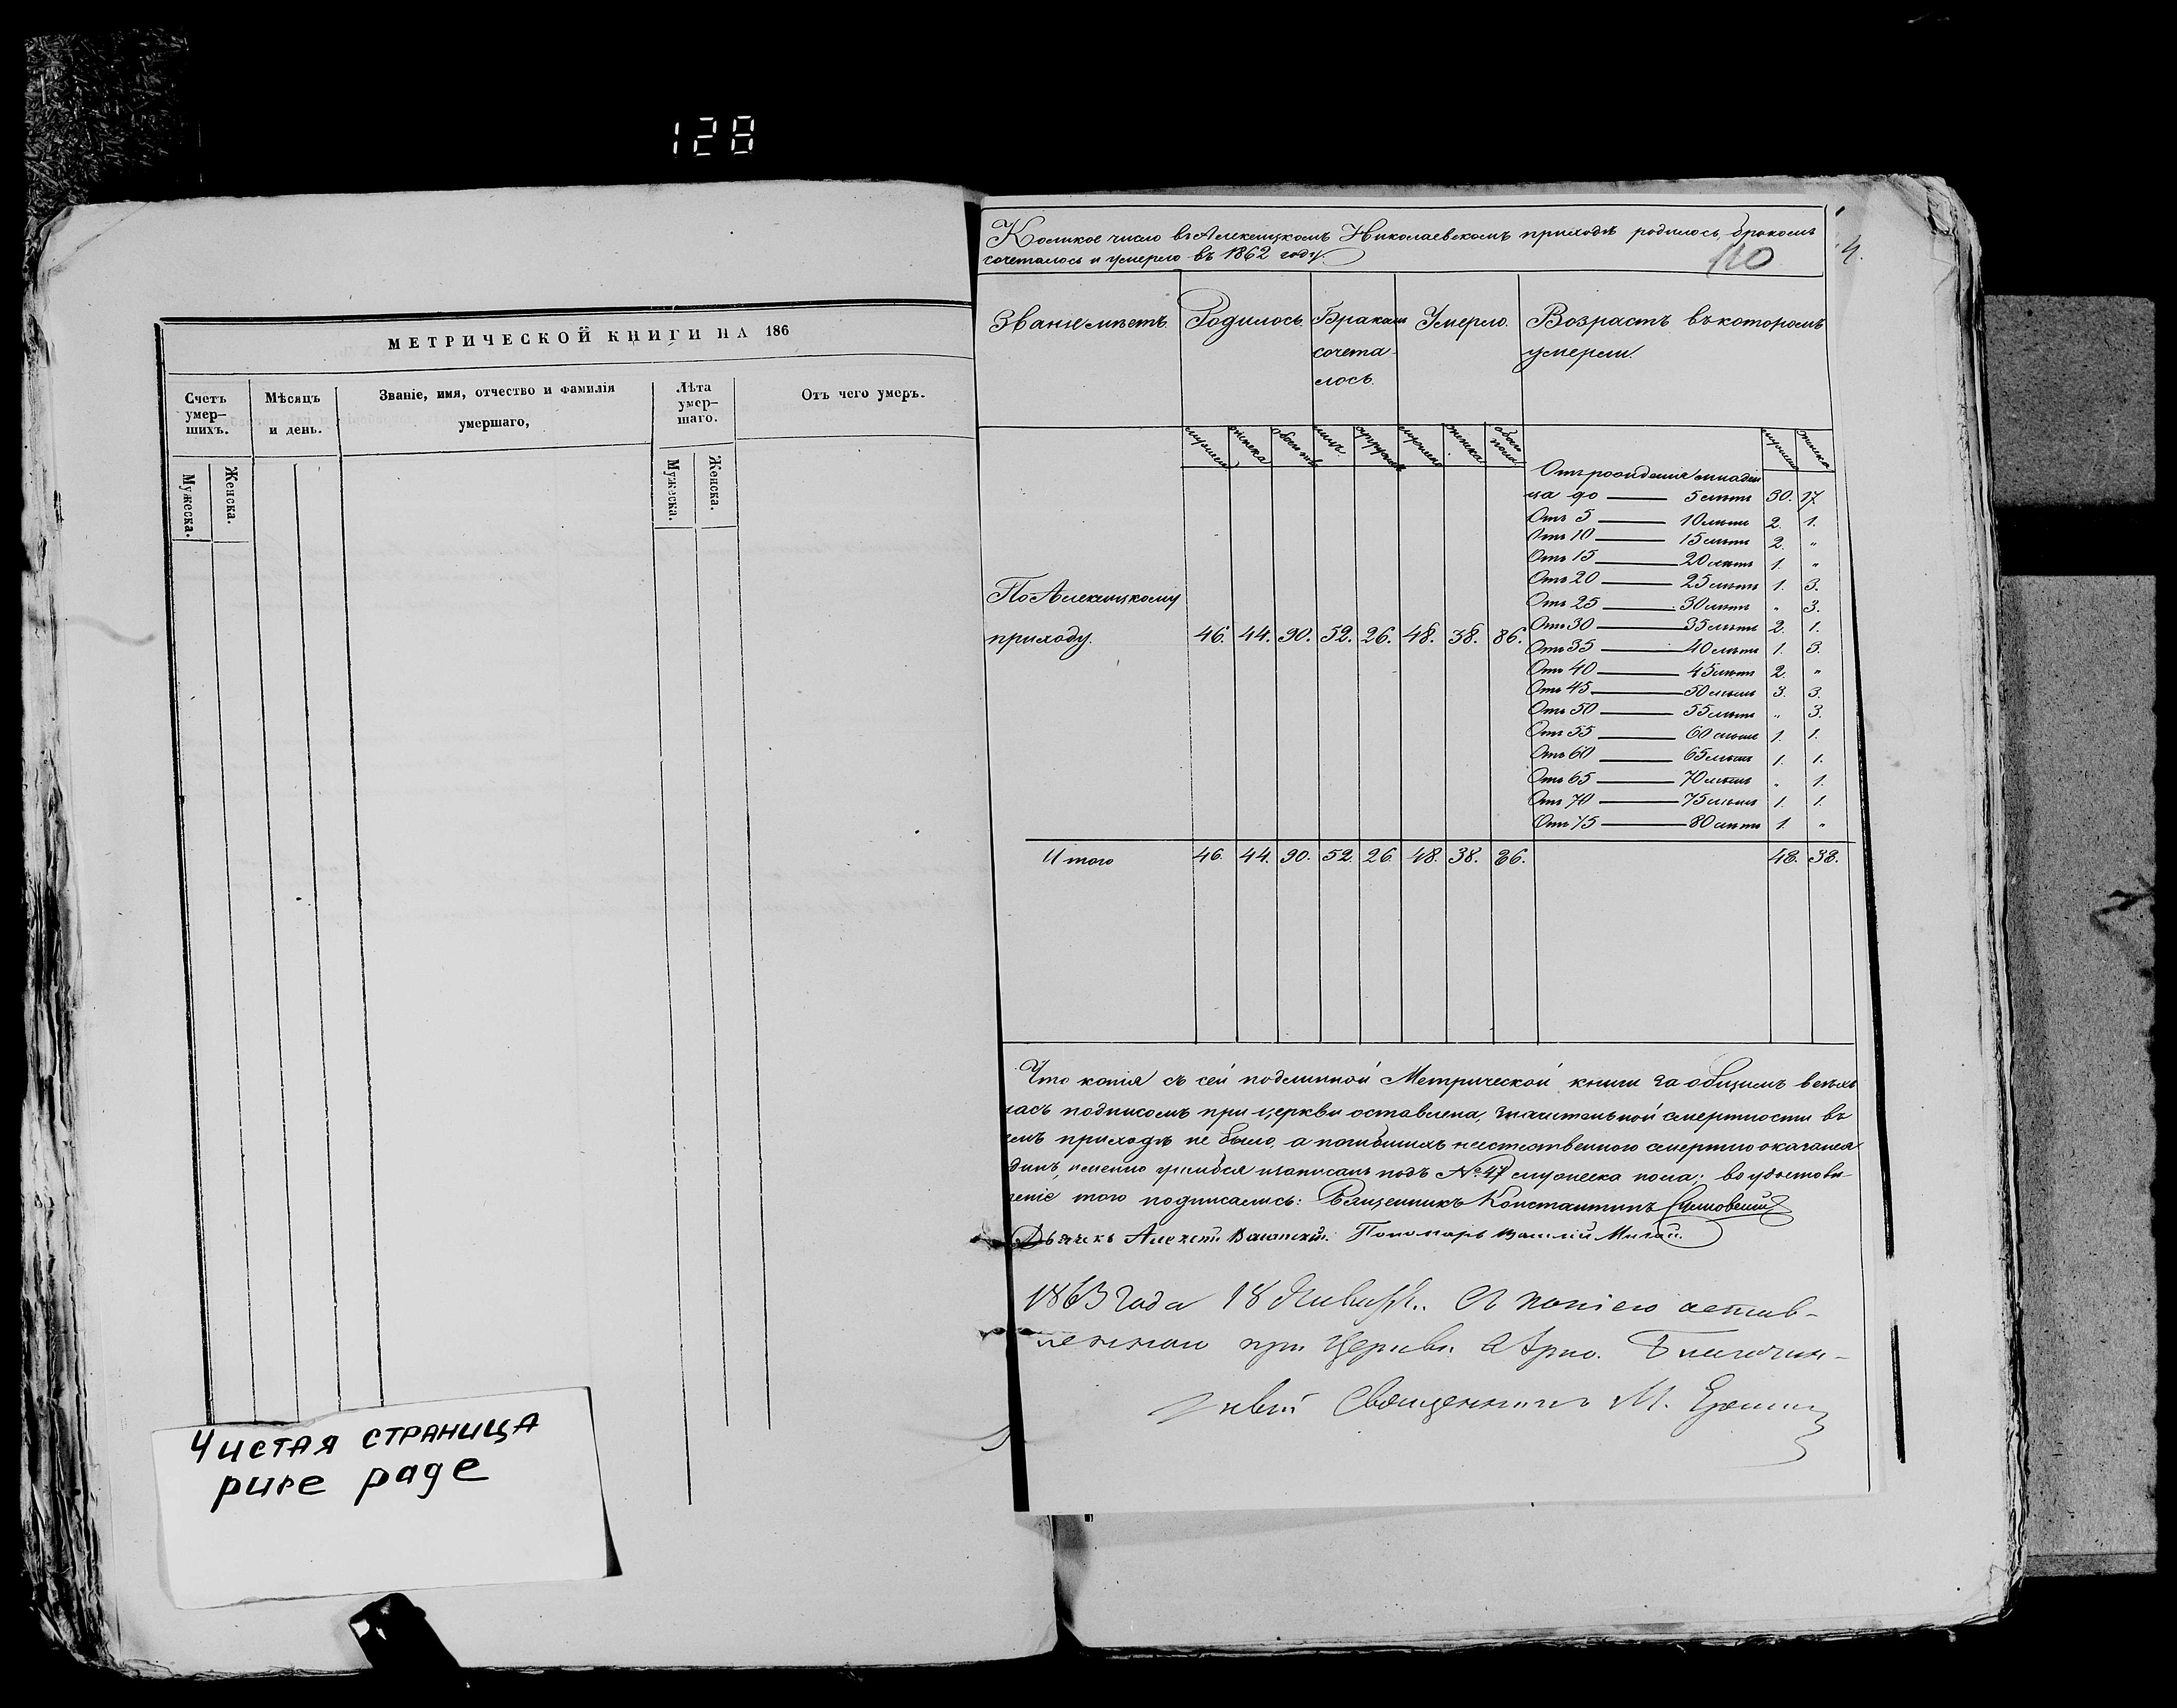 128
МЕТРИЧЕСКОЙ КНИГИ НА 186
Счетъ умер-шихъ.
Мѣсяцъ и день.
Званіе, имя, отчество и фамилія умершаго,
Лѣта умер-шаго.
Отъ чего умеръ.
Мужеска.
Женска.
Мужеска.
Женска.
Чистая страница
pure page
Коликое число въ Николаевскомъ приходѣ родилось, бракомъ
сочеталось и умерло въ 1862 году.
110
4.
Званіе мѣстъ.
Родилось.
Бракомъ сочета-лось.
Умерло.
Возрастъ въ которомъ умерли.
Отъ рожденія младен
ца до 5 лѣтъ 30. 17.
Отъ 5 10 лѣтъ 2. 1.
Отъ 10 15 лѣтъ 2. "
Отъ 15 20 лѣтъ 1. "
Отъ 20 25 лѣтъ 1. 3.
Отъ 25 30 лѣтъ " 3.
Отъ 30 35 лѣтъ 2. 1.
Отъ 35 40 лѣтъ 1. 3.
Отъ 40 45 лѣтъ 2. "
Отъ 45 50 лѣтъ 3. 3.
Отъ 50 55 лѣтъ " 3.
Отъ 55 60 лѣтъ 1. 1.
Отъ 60 65 лѣтъ 1. 1.
Отъ 65 70 лѣтъ " 1.
Отъ 70 75 лѣтъ 1. 1.
Отъ 75 80 лѣтъ 1. "
По
приходу. 46. 44. 90. 52. 26. 48. 38. 86.
Итого 46. 44. 90. 52. 26. 48. 38. 86. 48. 38.
Что копія съ сей подлинной Метрической книги за общимъ всѣхъ
насъ подписомъ при церкви оставлена, значительной смертности въ
семъ приходѣ не было, а погибшихъ неестественною смертію оказался
одинъ, именно записанъ подъ № 47 мужеска пола; во удостовѣ-
реніе того подписались: Священникъ Константинъ
Дьячекъ Алексѣй Пономарь Василій
1863 года 18 Января. Съ копіею остав-
ленною при Церкви вѣрно. Благочин-
ный Священникъ М.